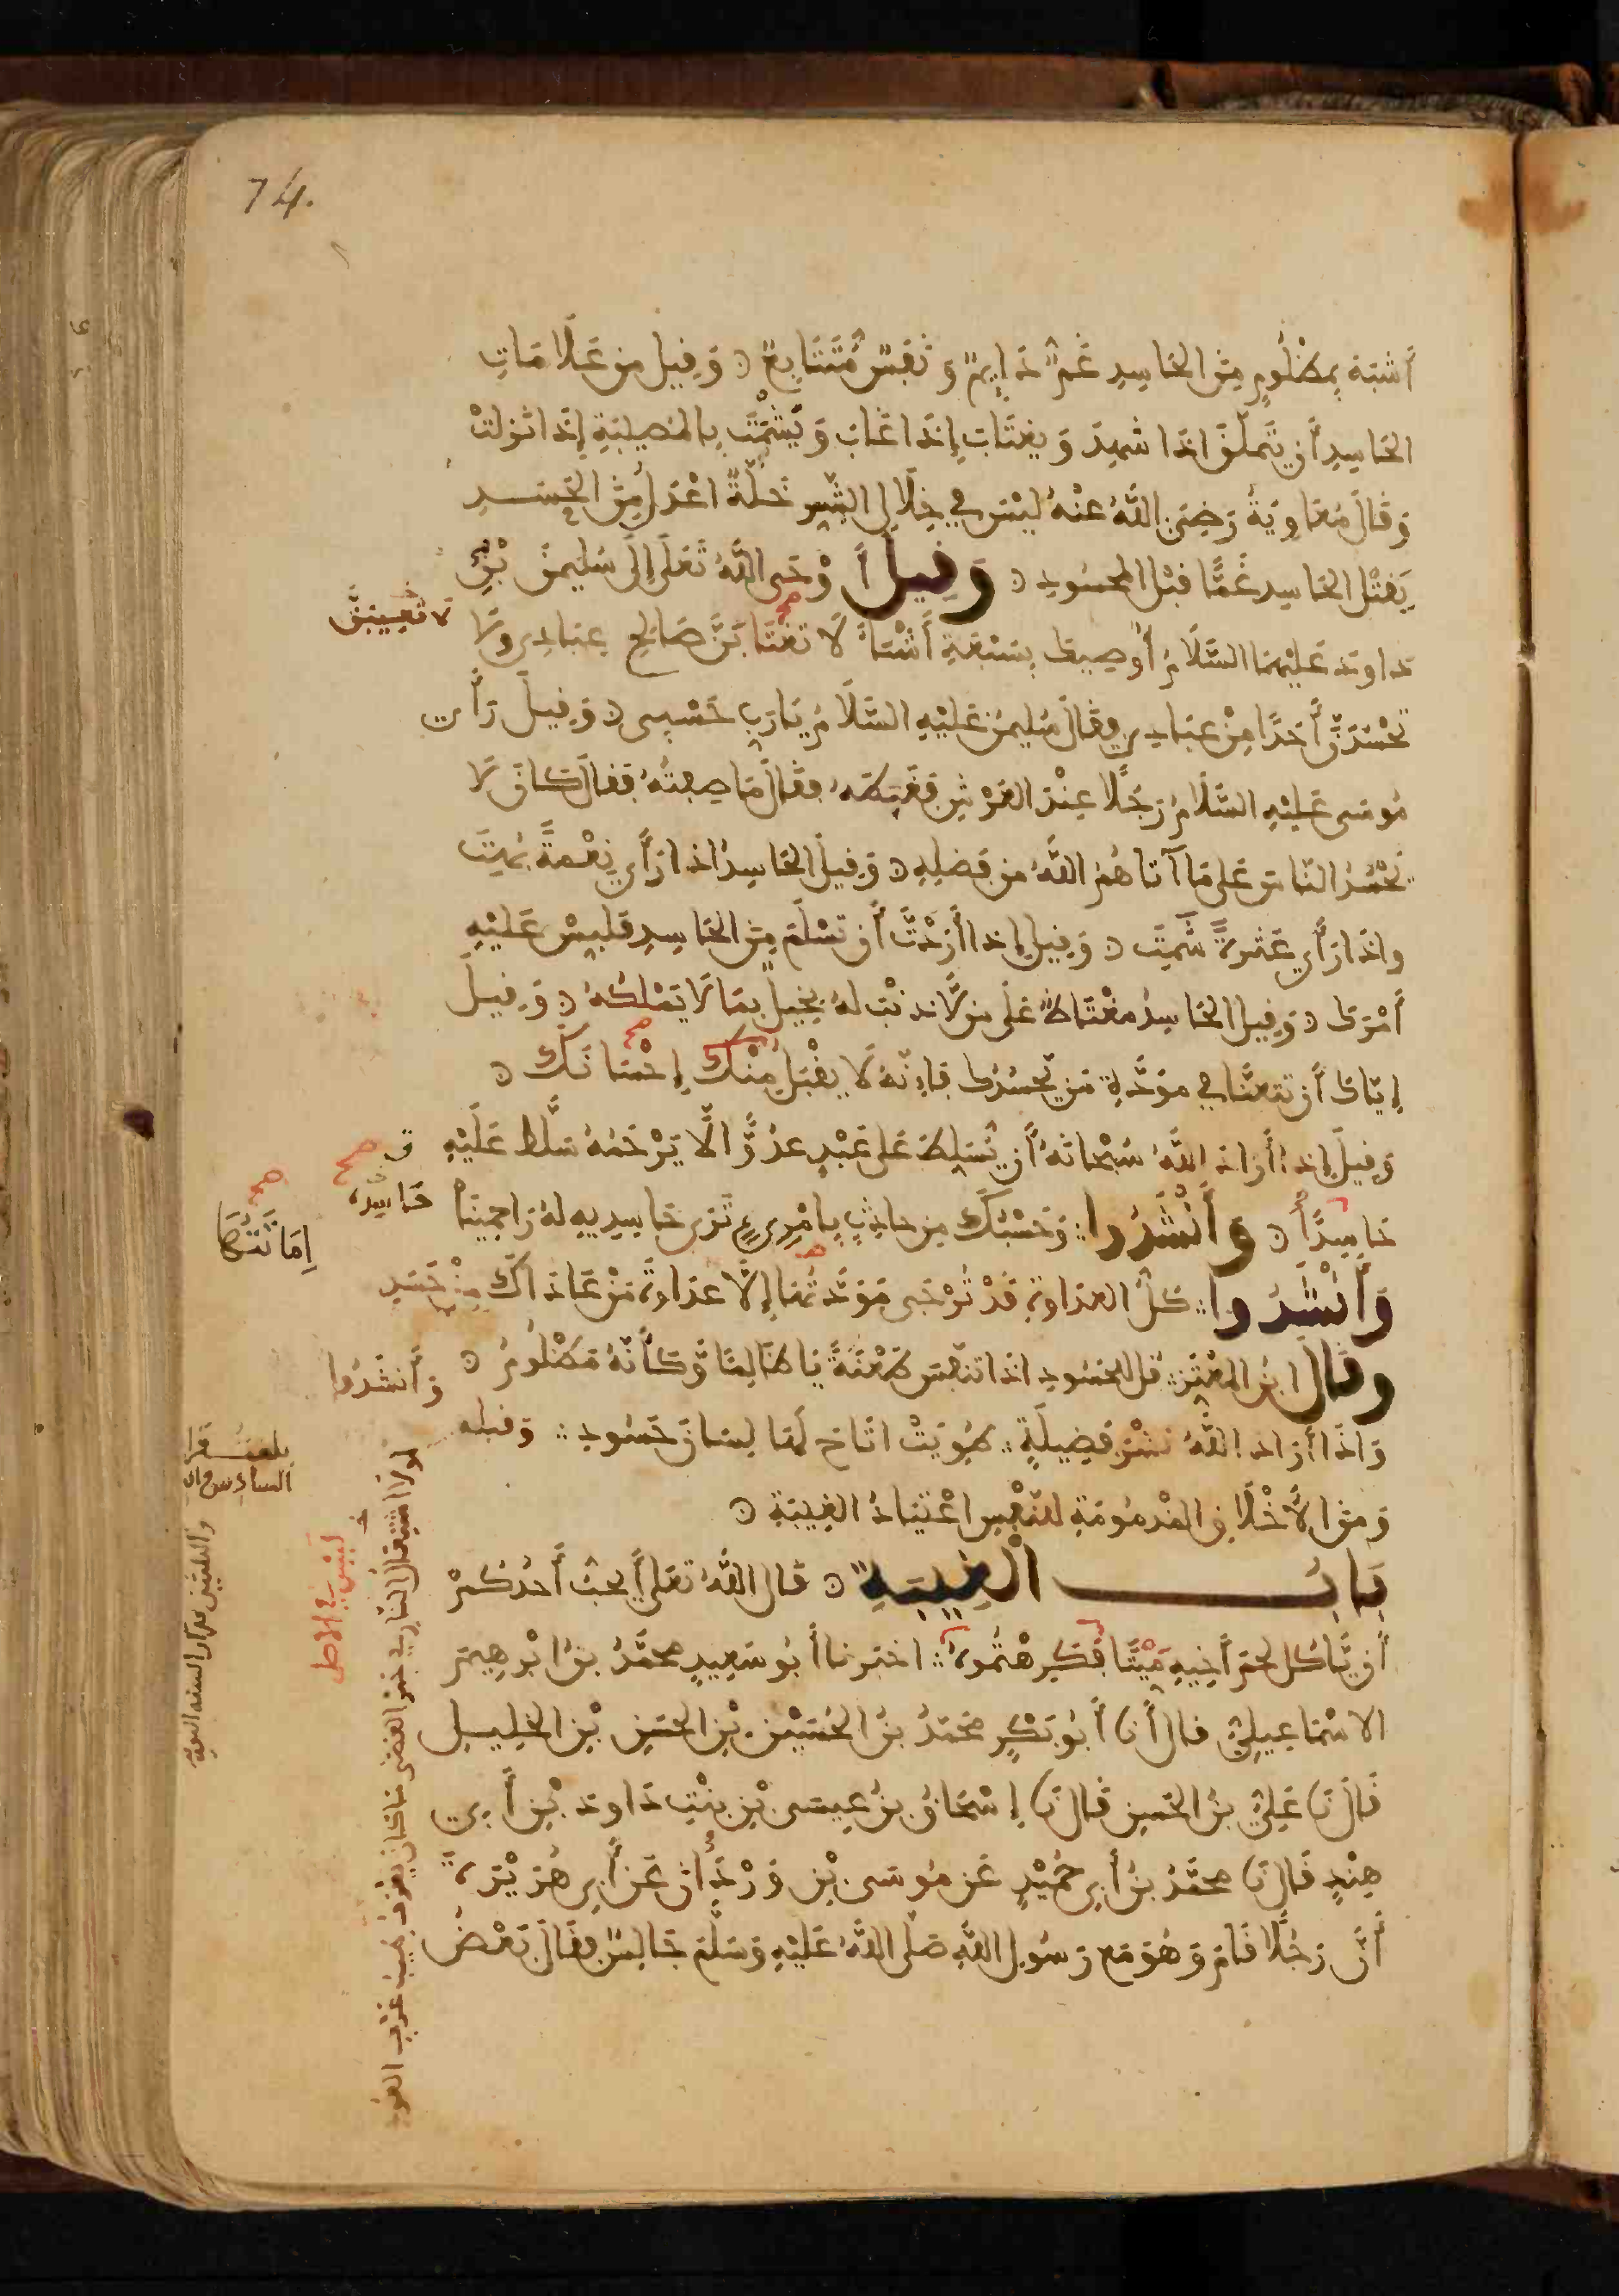 74.
أشبه بمظلوم من الحاسد غم دايم ونفس متتابع وقيل من علامات
الحاسد أن يتملق اذا شهد ويغتاب إذا غاب ويشمت بالمصيبة إذا نزلت
وقال معاوية رضي الله عنه ليس في خلال الشر خلة اعدل من الحسد
يقتل الحاسد غما قبل المحسود وقيل أوحى الله تعلى إلى سليمن بن
لا تعيبن
داود عليهما السلام أوصيك بسبعة أشيا لا تغتابن صالح عبادي ولا
تحسدن أحدا من عبادي فقال سليمن عليه السلام يا رب حسبي وقيل رأى
موسى عليه السلام رجلا عند العرش فغبطه فقال ما صفته فقال كان لا
يحسد الناس على ما آتاهم الله من فضله وقيل الحاسد اذا رأى نعمة بهت
واذا رأى عثرة شمت وقيل إذا أردت أن تسلم من الحاسد فلبس عليه
أمرك وقيل الحاسد مغتاظ على من لا ذنب له بخيل بما لا يملكه وقيل
إياك أن تتعنا في مودة من يحسدك فإنه لا يقبل منك إحسانك
صح
وقيل إذا أراد الله سبحانه أن يسلط على عبد عدوا لا يرحمه سلط عليه
حاسده
حاسدا وأنشدوا وحسبك من حادث بامرىء ترى حاسديه له راحمينا
صح
إماتتها
وأنشدوا كل العداوة قد ترجى مودتها إلا عداوة من عاداك من حسد
وقال ابن المعتز قل للحسود اذا تنفس طعنة يا ظالما وكأنه مظلوم
وأنشدوا
واذا أراد الله نشر فضيلة طويت اتاح لها لسان حسود وقبله
ومن الأخلاق المذمومة للنفس اعتياد الغيبة
باب الغيبة قال الله تعلى أيحب أحدكم
أن يأكل لحم أخيه ميتا فكرهتموه اخبرنا أبو سعيد محمد بن ابرهيم
الاسماعيلي قال أنا أبو بكر محمد بن الحسين بن الحسن بن الخليل
قال نا علي بن الحسن قال نا إسحاق بن عيسى بن بنت داود بن أبي
هند قال نا محمد بن أبي حميد عن موسى بن وردان عن أبي هريرة
أن رجلا قام وهو مع رسول الله صلى الله عليه وسلم جالس فقال بعض
لولا اشتعال النار في جزل الغضى ما كان يعرف طيب عرف العود
ليس في الاصل
بلغت قراءة